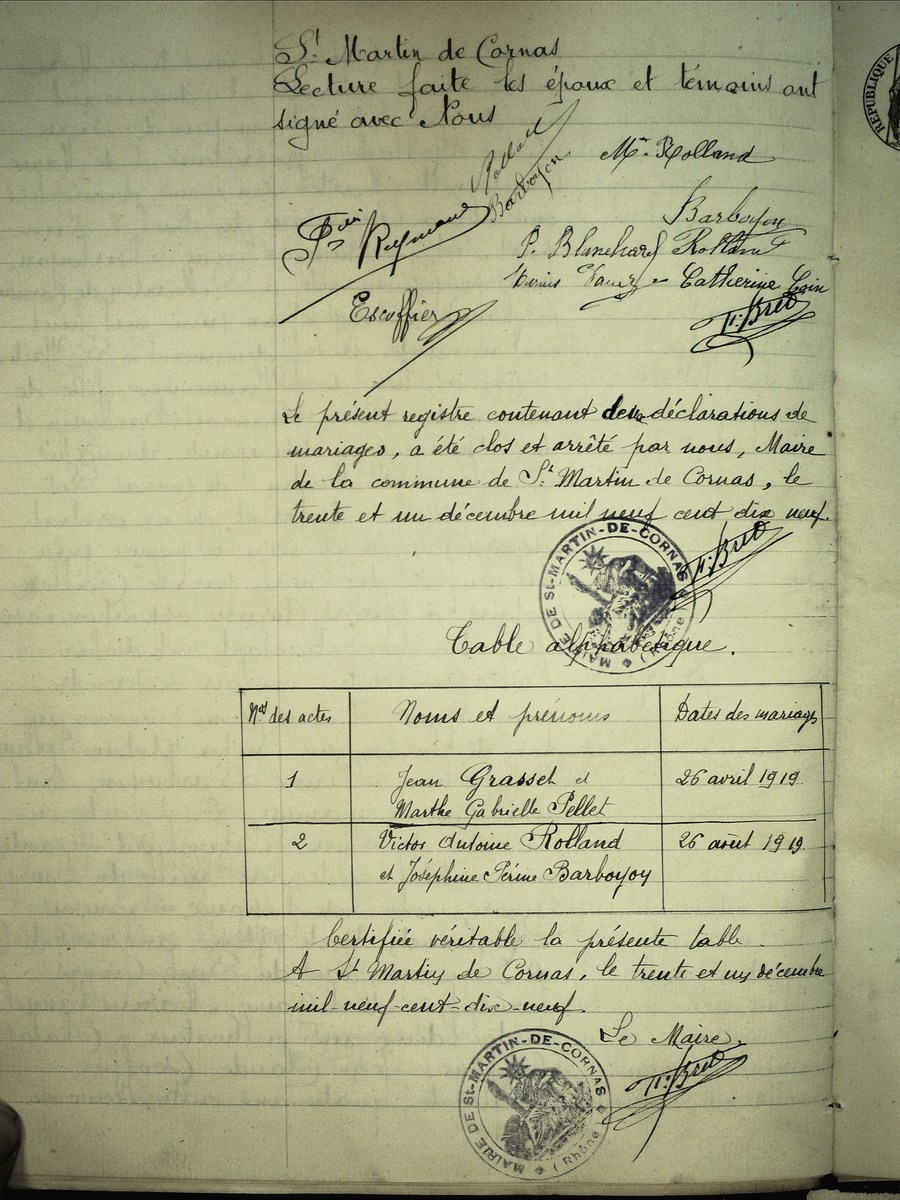 St Martin de Cornas
Lecture faite les époux et témoins ont
signé avec Nous
Mie Rolland
Barboyon
Barboyon
Raymond
P. Blanchard Rolland
Catherine
Escoffier
F. Bret
Le présent registre contenant des déclarations de
mariages, a été clos et arrêté par nous, Maire
de la commune de St Martin de Cornas, le
trente et un décembre mil neuf cent dix neuf.
F. Bret
MAIRIE DE St-MARTIN-DE-CORNAS (Rhône)
Table alphabétique.
Nos des actes Noms et prénoms Dates des mariages
1 Jean Grasset et 26 avril 1919
Marthe Gabrielle Pellet
2 Victor Antoine Rolland 26 août 1919
et Joséphine Périne Barboyon
Certifiée véritable la présente table.
A St Martin de Cornas, le trente et un décembre
mil-neuf-cent-dix-neuf.
Le Maire.
F. Bret
MAIRIE DE St-MARTIN-DE-CORNAS (Rhône)
REPUBLIQUE